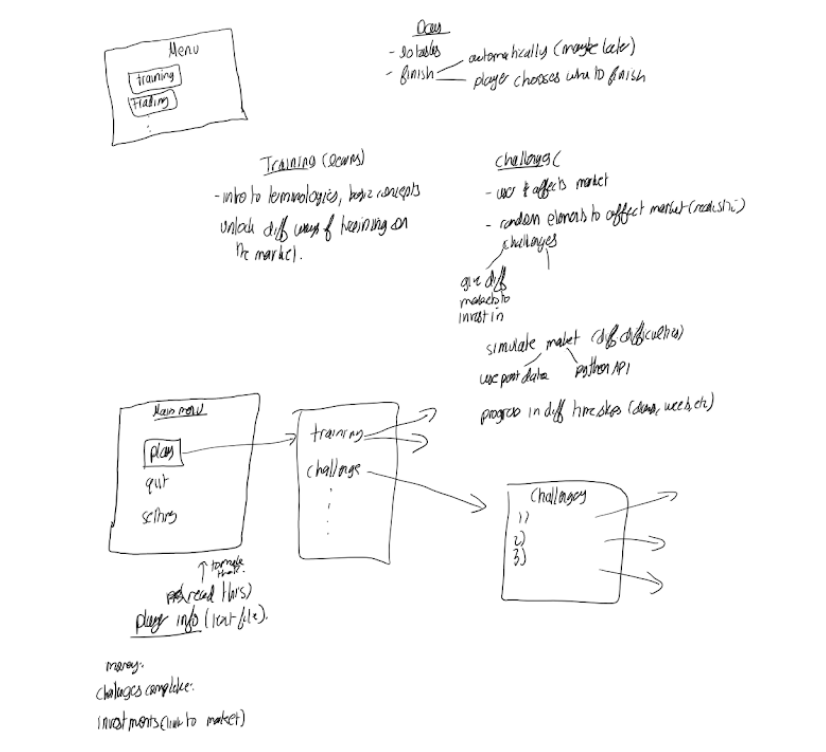 Menu
training
trading
Days
- finish
automatically (maybe later)
player chooses when to finish
Training (learns)
- intro to terminologies, basic concepts
unlock diff ways of training on
the market.
Challenges
- user affects market
- random elements to affect market (realistic)
challenges
give diff
markets to
invest in
simulate market (diff difficulties)
use past data
python API
progress in diff timeskips (days, weeks, etc)
Main menu
play
quit
setting
training
challenge
Challenges
1)
2)
3)
read this)
player info (text file).
money.
challenges complete.
investments (link to market)